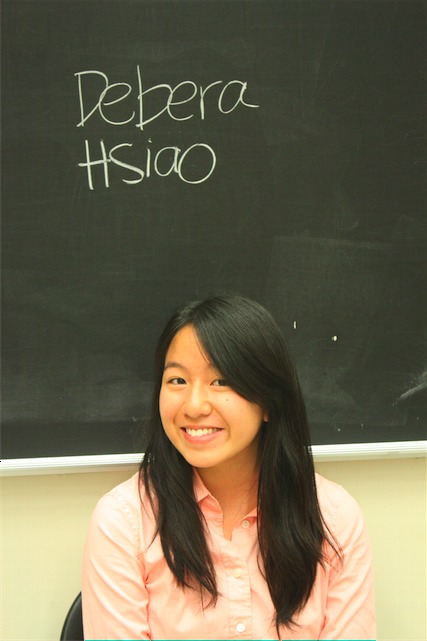 Debera
Hsiao